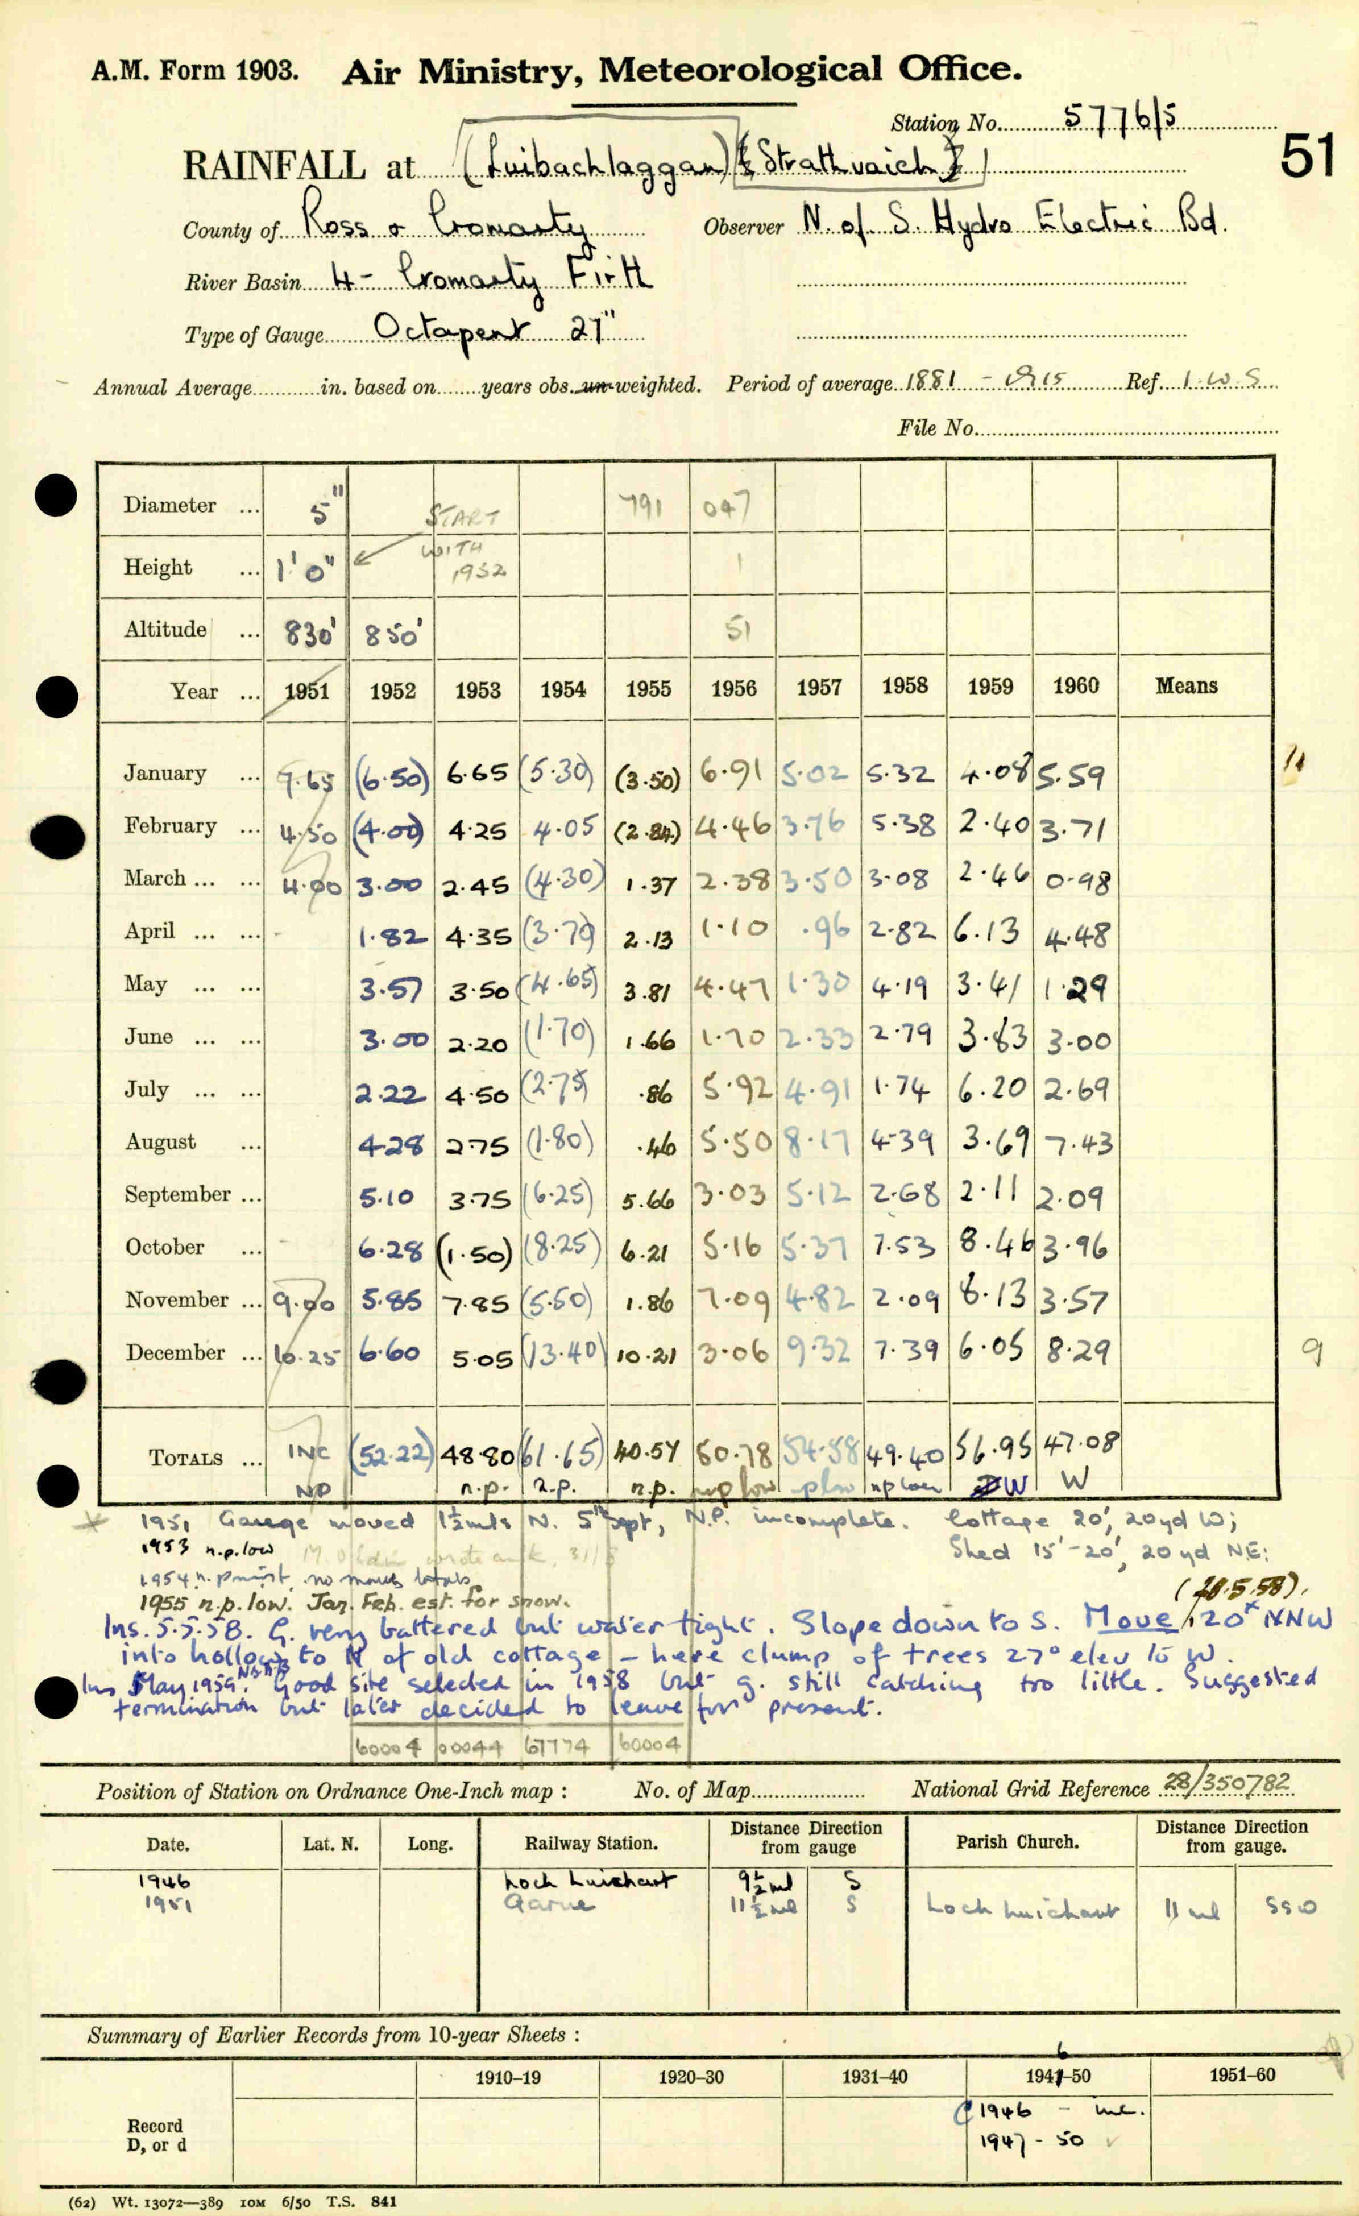 A.M. Form 1903. Air Ministry, Meteorological Office.
Station No. 5776/5
51
RAINFALL at (Luibachlaggan) (Strathvaich)
County of Ross & Cromarty Observer N. of S. Hydro Electric Bd.
River Basin 4 - Cromarty Firth
Type of Gauge Octapent 27"
Annual Average in. based on years obs. un-weighted. Period of average 1881 - 1915 Ref. I.W.S.
File No.
Diameter ... 5" START 791 047
Height ... 1'0" WITH 1952 1
Altitude ... 830' 850' 51
Year ... 1951 1952 1953 1954 1955 1956 1957 1958 1959 1960 Means
January ... 9.65 (6.50) 6.65 (5.30) (3.50) 6.91 5.02 5.32 4.08 5.59
February ... 4.50 (4.00) 4.25 4.05 (2.84) 4.46 3.76 5.38 2.40 3.71
March ... ... 4.00 3.00 2.45 (4.30) 1.37 2.38 3.50 3.08 2.46 0.98
April ... ... - 1.82 4.35 (3.70) 2.13 1.10 .96 2.82 6.13 4.48
May ... ... 3.57 3.50 (4.65) 3.81 4.47 1.30 4.19 3.41 1.29
June ... ... 3.00 2.20 (1.70) 1.66 1.70 2.33 2.79 3.83 3.00
July ... ... 2.22 4.50 (2.75) .86 5.92 4.91 1.74 6.20 2.69
August ... 4.28 2.75 (1.80) .46 5.50 8.17 4.39 3.69 7.43
September ... 5.10 3.75 (6.25) 5.66 3.03 5.12 2.68 2.11 2.09
October ... 6.28 (1.50) (8.25) 6.21 5.16 5.37 7.53 8.46 3.96
November ... 9.00 5.85 7.85 (5.50) 1.86 7.09 4.82 2.09 8.13 3.57
December ... 10.25 6.60 5.05 (13.40) 10.21 3.06 9.32 7.39 6.05 8.29
9
TOTALS ... INC (52.22) 48.80 (61.65) 40.57 50.78 54.58 49.40 56.95 47.08
NP n.p. n.p. n.p. np low np low W W
1951 Gauge moved 1½ mls N. 5th Sept, N.P. incomplete. Cottage 20', 20yd W;
1953 n.p. low Shed 15'-20', 20 yd NE;
1954 n.p. no months totals
1955 n.p. low. Jan. Feb. est. for snow.
Ins. 5.5.58. G. very battered but water tight. Slope down to S. Move 120x NNW
into hollow to N of old cottage - here clump of trees 27° elev to W.
Ins May 1959. Good site selected in 1958 but g. still catching too little. Suggested
termination but later decided to leave for present.
60004 00044 67774 60004
Position of Station on Ordnance One-Inch map : No. of Map National Grid Reference 28/350782
Date. Lat. N. Long. Railway Station. Distance Direction from gauge Parish Church. Distance Direction from gauge.
1946 Loch Luichart 9½ ml S
1951 Garve 11½ ml S Loch Luichart 11 ml SSW
Summary of Earlier Records from 10-year Sheets :
1910–19 1920–30 1931–40 1941–50 1951–60
6
Record D, or d
1946 - inc.
1947 - 50
(62) Wt. 13072—389 10M 6/50 T.S. 841